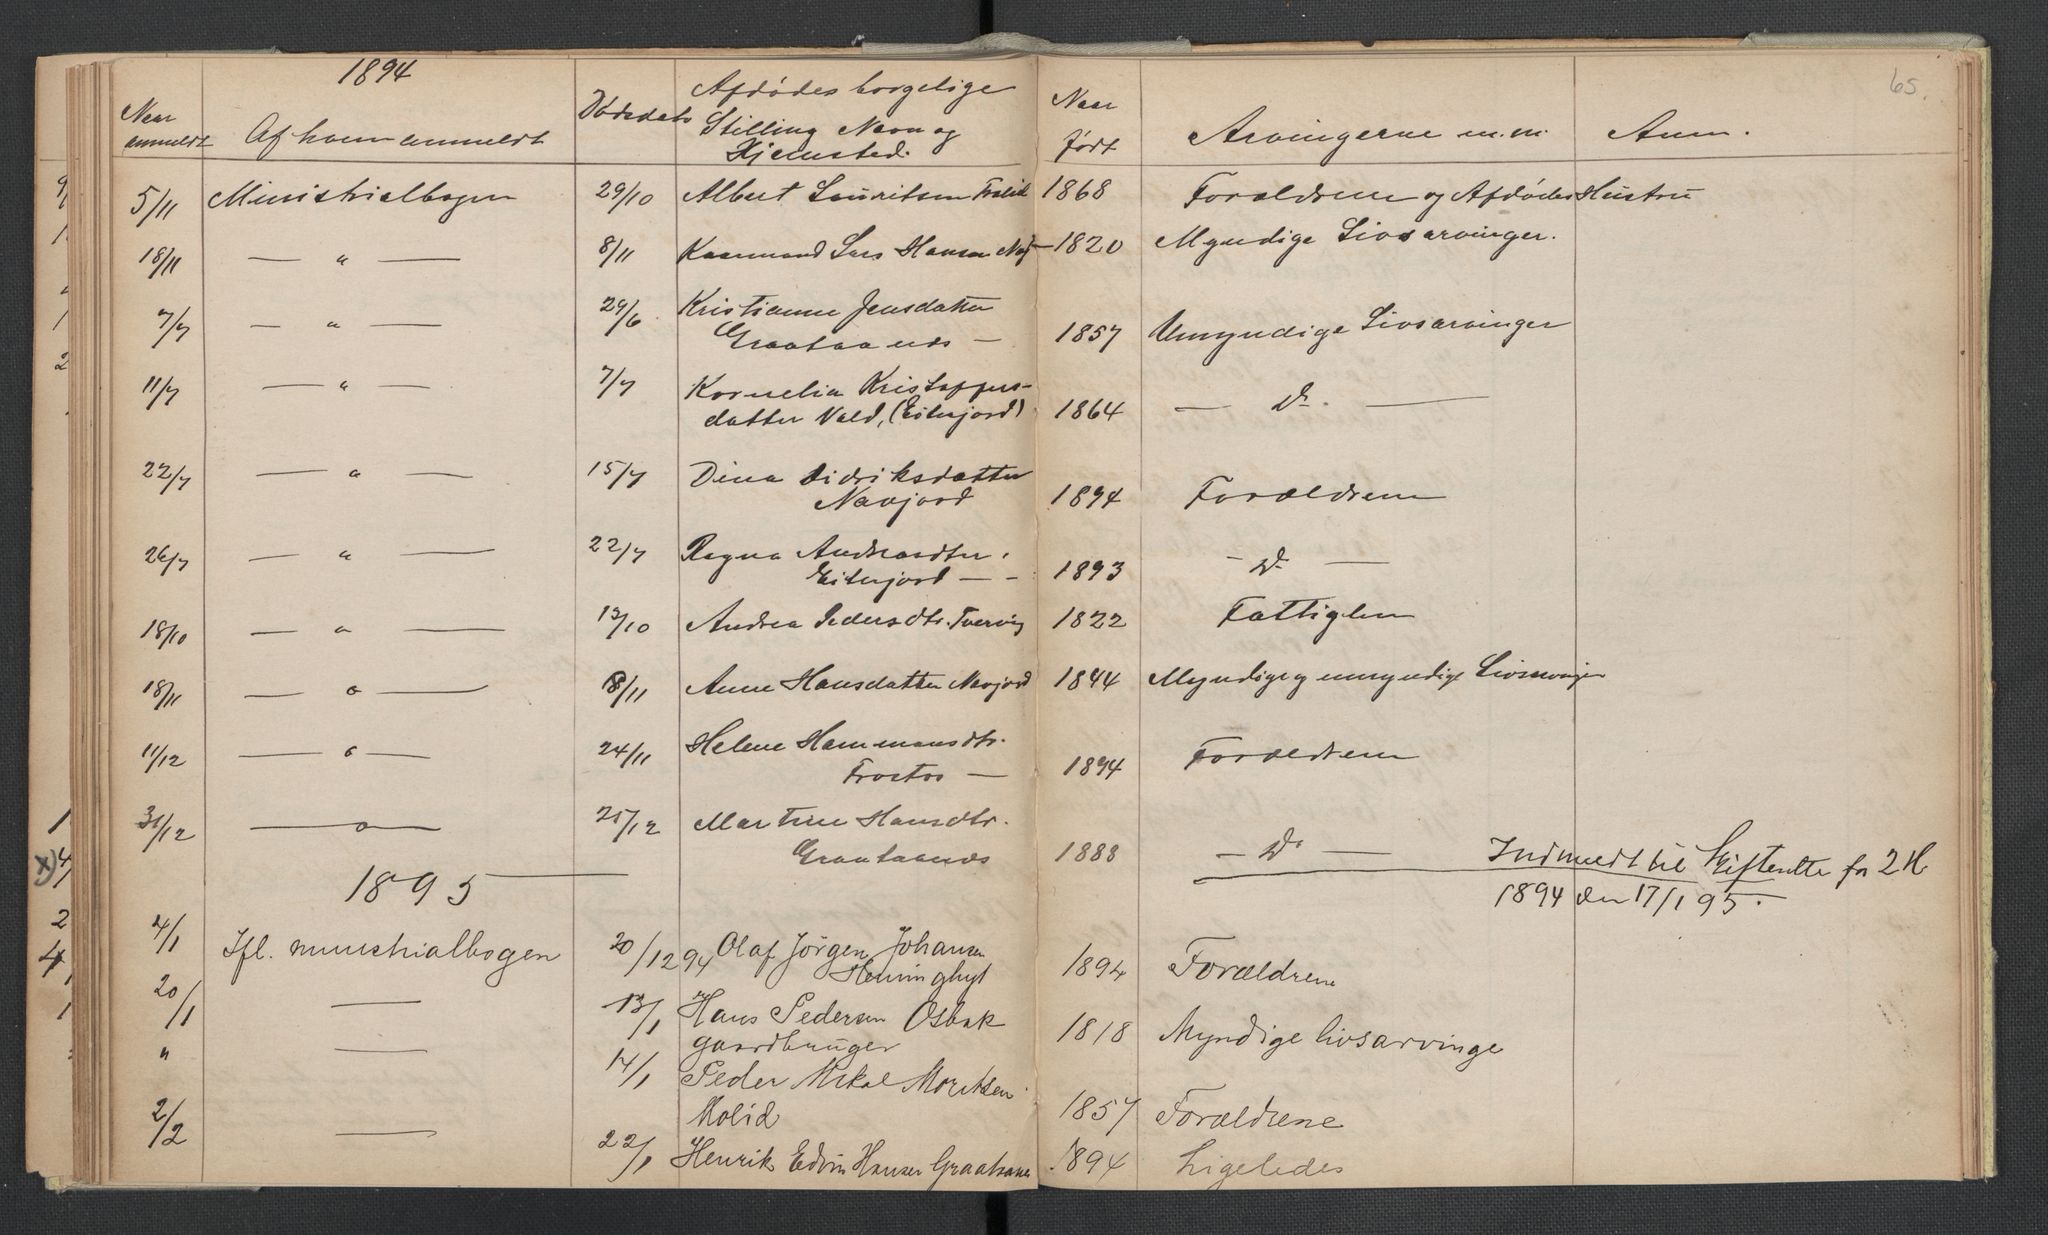 65.
1894
Naar anmeldt Af hvem anmeldt Dødsdato Afdødes borgelige Stilling Navn og Hjemsted. Naar født Arvingerne m.m. Anm.
5/11 Ministrialbogen 29/10 Albert Lauritsen 1868 Forældrene og Afdødes Hustru
18/11 — " — 8/11 Kaarmand Lars Hansen 1820 Myndige Livsarvinger.
7/7 — " — 29/6 Kristianne Jensdatter
Graataanes — 1857 Umyndige Livsarvinger
11/7 — " — 7/7 Kornelia Kristoffers-
datter Vald, (Eiterjord) 1864 — Do. —
22/7 — " — 15/7 Dina Didriksdatter
Navjord 1894 Forældrene
26/7 — " — 22/7 Ragna Andreasdtr.
Eiterjord — - 1893 — Do —
18/10 — " — 13/10 Andrea Pedersdtr. Tvervig 1822 Fattiglem
18/11 — " — 8/11 Anne Hansdatter Navjord 1844 Myndige og umyndige Livsarvinger
11/12 — " — 24/11 Helene Hammansdtr.
Frostos — 1894 Forældrene
31/12 — " — 25/12 Martine Hansdtr.
Graataanes 1888 — Do — Indmeldt til Skifteretten for 2 H
1894 den 17/1 95.
1895
4/1 Ifl. ministrialbogen 20/12 94 Olaf Jørgen Johansen
Heminghyt 1894 Forældrene
20/1 — 13/1 Hans Pedersen Osbak
gaardbruger 1818 Myndige livsarvinge
" — 14/1 Peder Mikal Moritsen
Molid 1857 Forældrene
2/2 — 22/1 Henrik Edvin Hansen Graataanes 1894 Ligeledes